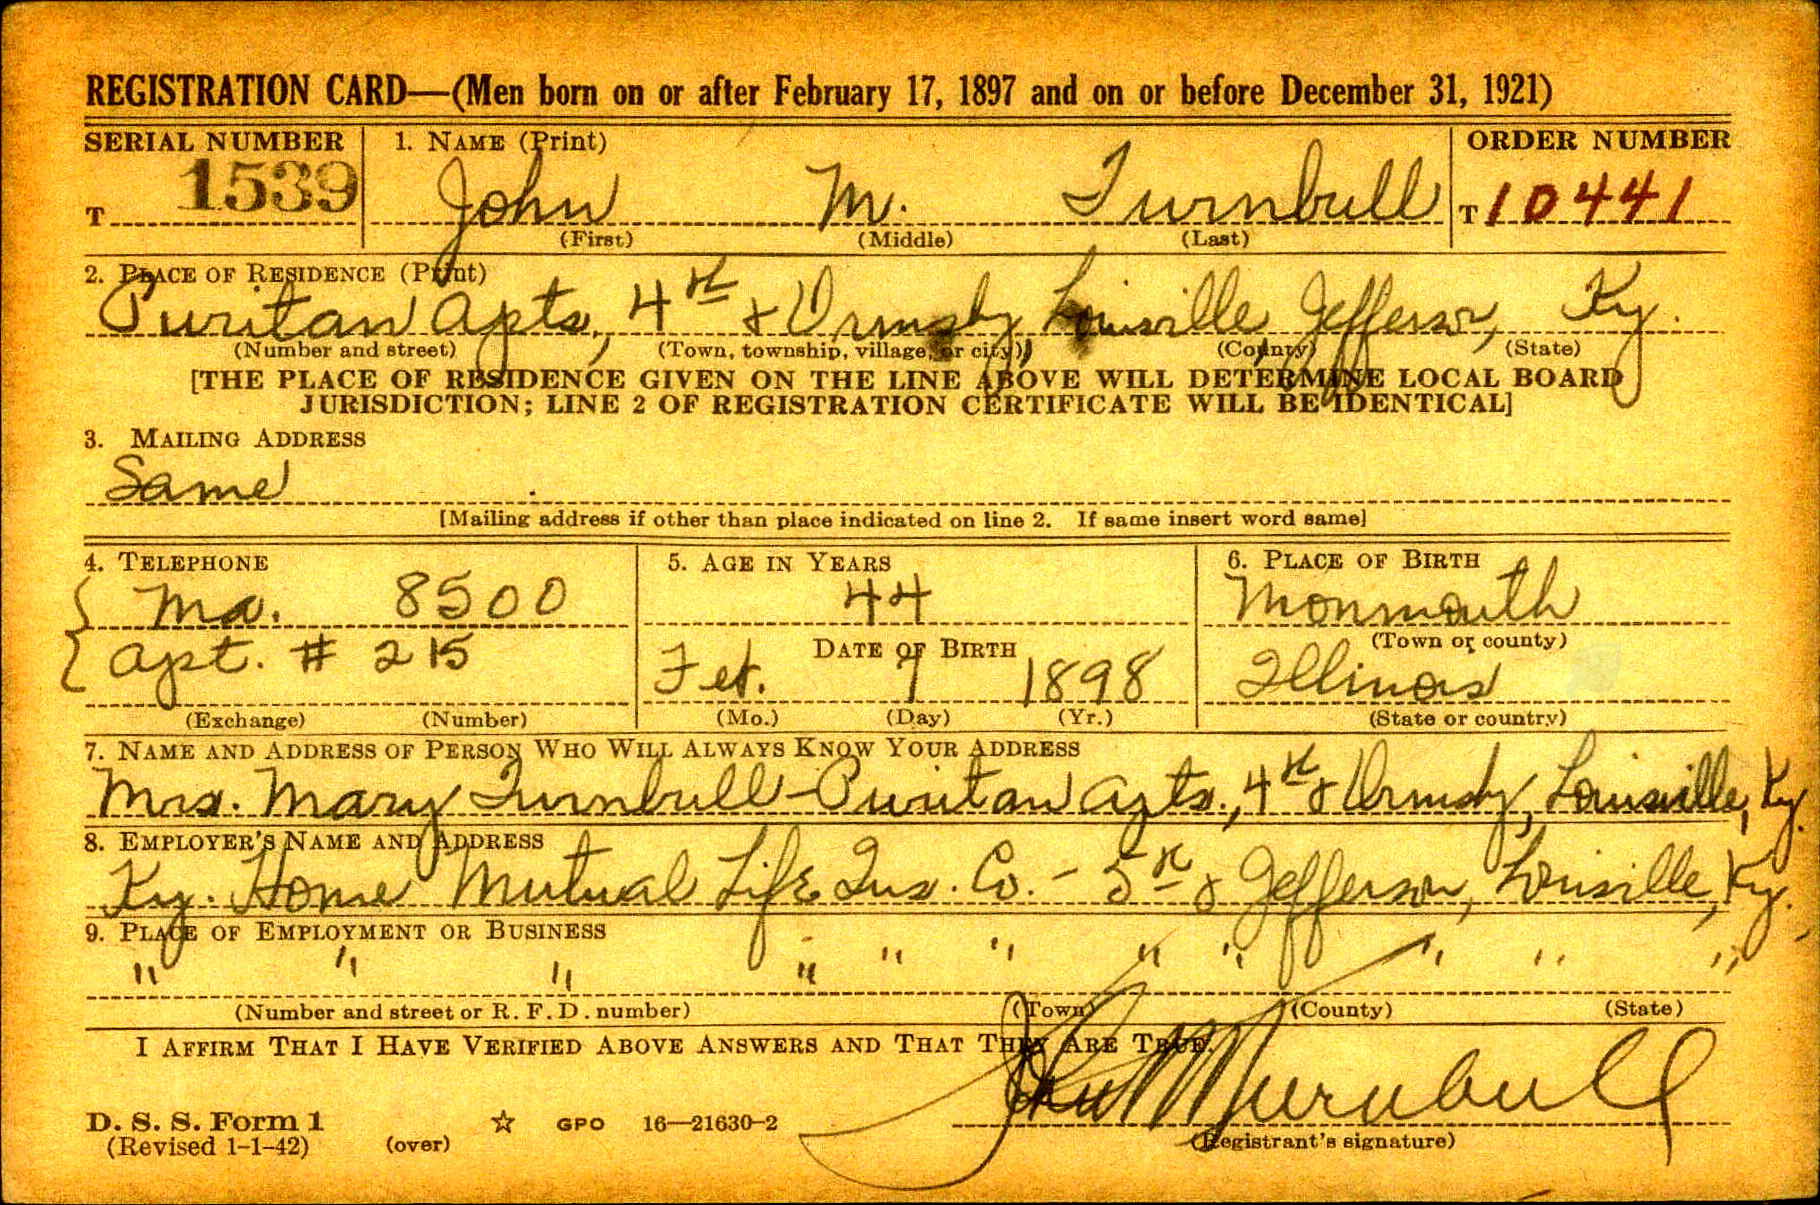 REGISTRATION CARD—(Men born on or after February 17, 1897 and on or before December 31, 1921)
SERIAL NUMBER 1. NAME (Print) ORDER NUMBER
T 1539 John M. Turnbull T 10441
(First) (Middle) (Last)
2. PLACE OF RESIDENCE (Print)
Puritan Apts, 4th & Ormsby Louisville Jefferson, Ky.
(Number and street) (Town, township, village, or city) (County) (State)
[THE PLACE OF RESIDENCE GIVEN ON THE LINE ABOVE WILL DETERMINE LOCAL BOARD
JURISDICTION; LINE 2 OF REGISTRATION CERTIFICATE WILL BE IDENTICAL]
3. MAILING ADDRESS
Same
[Mailing address if other than place indicated on line 2. If same insert word same]
4. TELEPHONE 5. AGE IN YEARS 6. PLACE OF BIRTH
Ma. 8500 44 Monmouth
DATE OF BIRTH (Town or county)
Apt. # 215 Feb. 9 1898 Illinois
(Exchange) (Number) (Mo.) (Day) (Yr.) (State or country)
7. NAME AND ADDRESS OF PERSON WHO WILL ALWAYS KNOW YOUR ADDRESS
Mrs. Mary Turnbull - Puritan Apts., 4th & Ormsby, Louisville, Ky.
8. EMPLOYER'S NAME AND ADDRESS
Ky. Home Mutual Life Ins. Co. - 5th & Jefferson, Louisville, Ky.
9. PLACE OF EMPLOYMENT OR BUSINESS
" " " " " " " " " " "
(Number and street or R. F. D. number) (Town) (County) (State)
I AFFIRM THAT I HAVE VERIFIED ABOVE ANSWERS AND THAT THEY ARE TRUE.
John M Turnbull
D. S. S. Form 1 ☆ GPO 16—21630-2
(Revised 1-1-42) (over) (Registrant's signature)